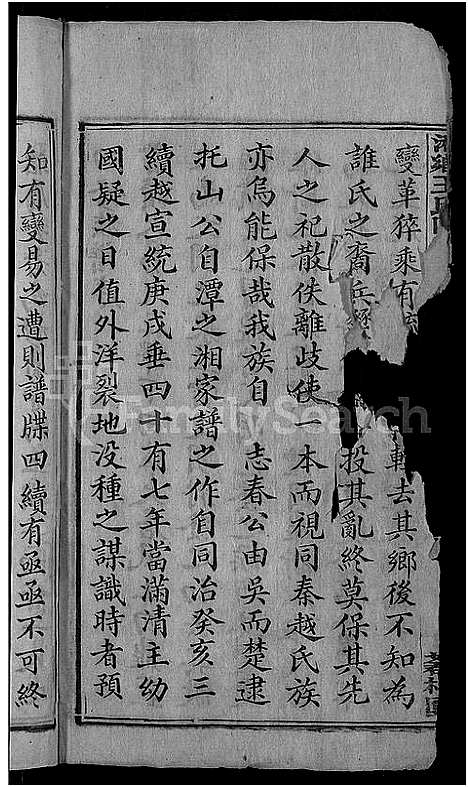 變革猝乘有 軼去其鄉後不知為
誰氏之裔兵 投其亂終莫保其先
人之祀散佚離歧使一本而視同秦越氏族
亦烏能保哉我族自 志春公由吳而楚逮
托山公自潭之湘家譜之作自同治癸亥三
續越宣統庚戌垂四十有七年當滿清主幼
國疑之日值外洋裂地没種之謀識時者預
知有變易之遭則譜牒四續有亟亟不可終
FamilySearch